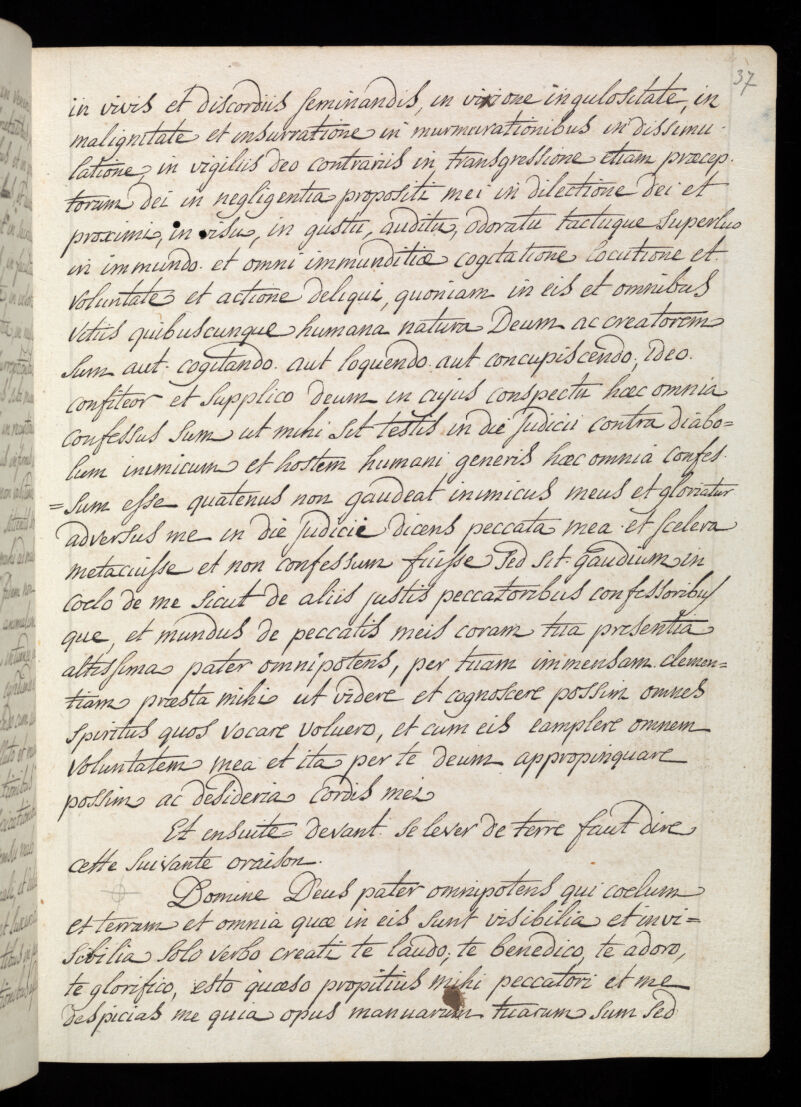 37
in vivis et discordiis seminandis, in visione in gulositate, in
malignitate et insurratione in murmurationibus in dissimu-
latione, in vigiliis deo contrariis in transgressione etiam præcep-
torum dei in negligentia propositi mei in dilectione dei et
proximi, in visu, in gustu, auditu, odoratu tactuque superluo
in immundo. et omni immunditiæ cogitatione locutione et
voluntate et actione deliqui, quoniam in eis et omnibus
vitiis quibuscunque humana natura Deum ac creatorem
sum aut. cogitando. aut loquendo. aut concupiscendo; ideo.
confiteor et supplico deum in cujus conspectu hæc omnia
confessus sum ut mihi sit testis in die judicii contra diabo-
lum inimicum et hostem humani generis hæc omnia confes.
=sum esse quatenus non gaudeat inimicus meus et gloriatur
adversus me in die judicie dicens peccata mea et scelera
metacuisse et non confessum fuisse sed sit gaudium in
coelo de me sicut de aliis justis peccatoribus confessoribus
que, et mundus de peccatis meis coram tua presentia
altissima pater omnipotens, per tuam immensam clemen=
tiam præsta mihi ut videre et cognoscere possim omnes
spiritus quos vocare voluero, et cum eis eamplere omnem
voluntatem mea et ita per te deum appropinquare
possim ac desideria cordis mei
Et ensuite devant se lever de terre faut dire
cette suivante oraison.
Domine Deus pater omnipotens qui coelum
et terram et omnia quæ in eis sunt visibilia et invi=
sibilia solo verbo creati te laudo, te benedico, te adoro,
te glorifico, esto quæso propitius mihi peccatori et me
despicias me quia opus manuarum tuarum sum sed